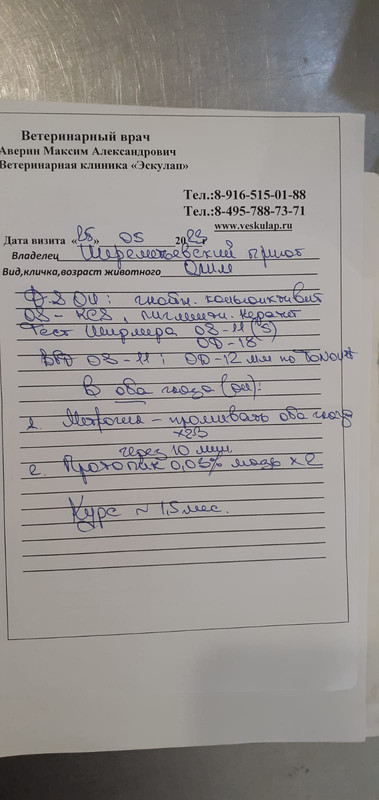 Ветеринарный врач
Аверин Максим Александрович
Ветеринарная клиника «Эскулап»
Тел.:8-916-515-01-88
Тел.:8-495-788-73-71
www.veskulap.ru
Дата визита «25» 05 2023г
Владелец Шереметьевский приют
Вид,кличка,возраст животного
DS OU: гнойн. конъюнктивит
OS - KCS, пигментн. кератит
Тест Ширмера OS-11 (5)
OD-18
ВГД OS-11; OD-12 мм по
В оба глаза (OU):
1. - промывать оба глаза
x2-3
через 10 мин.
2. Протопик 0,03% мазь x2
Курс ~ 1,5 мес.